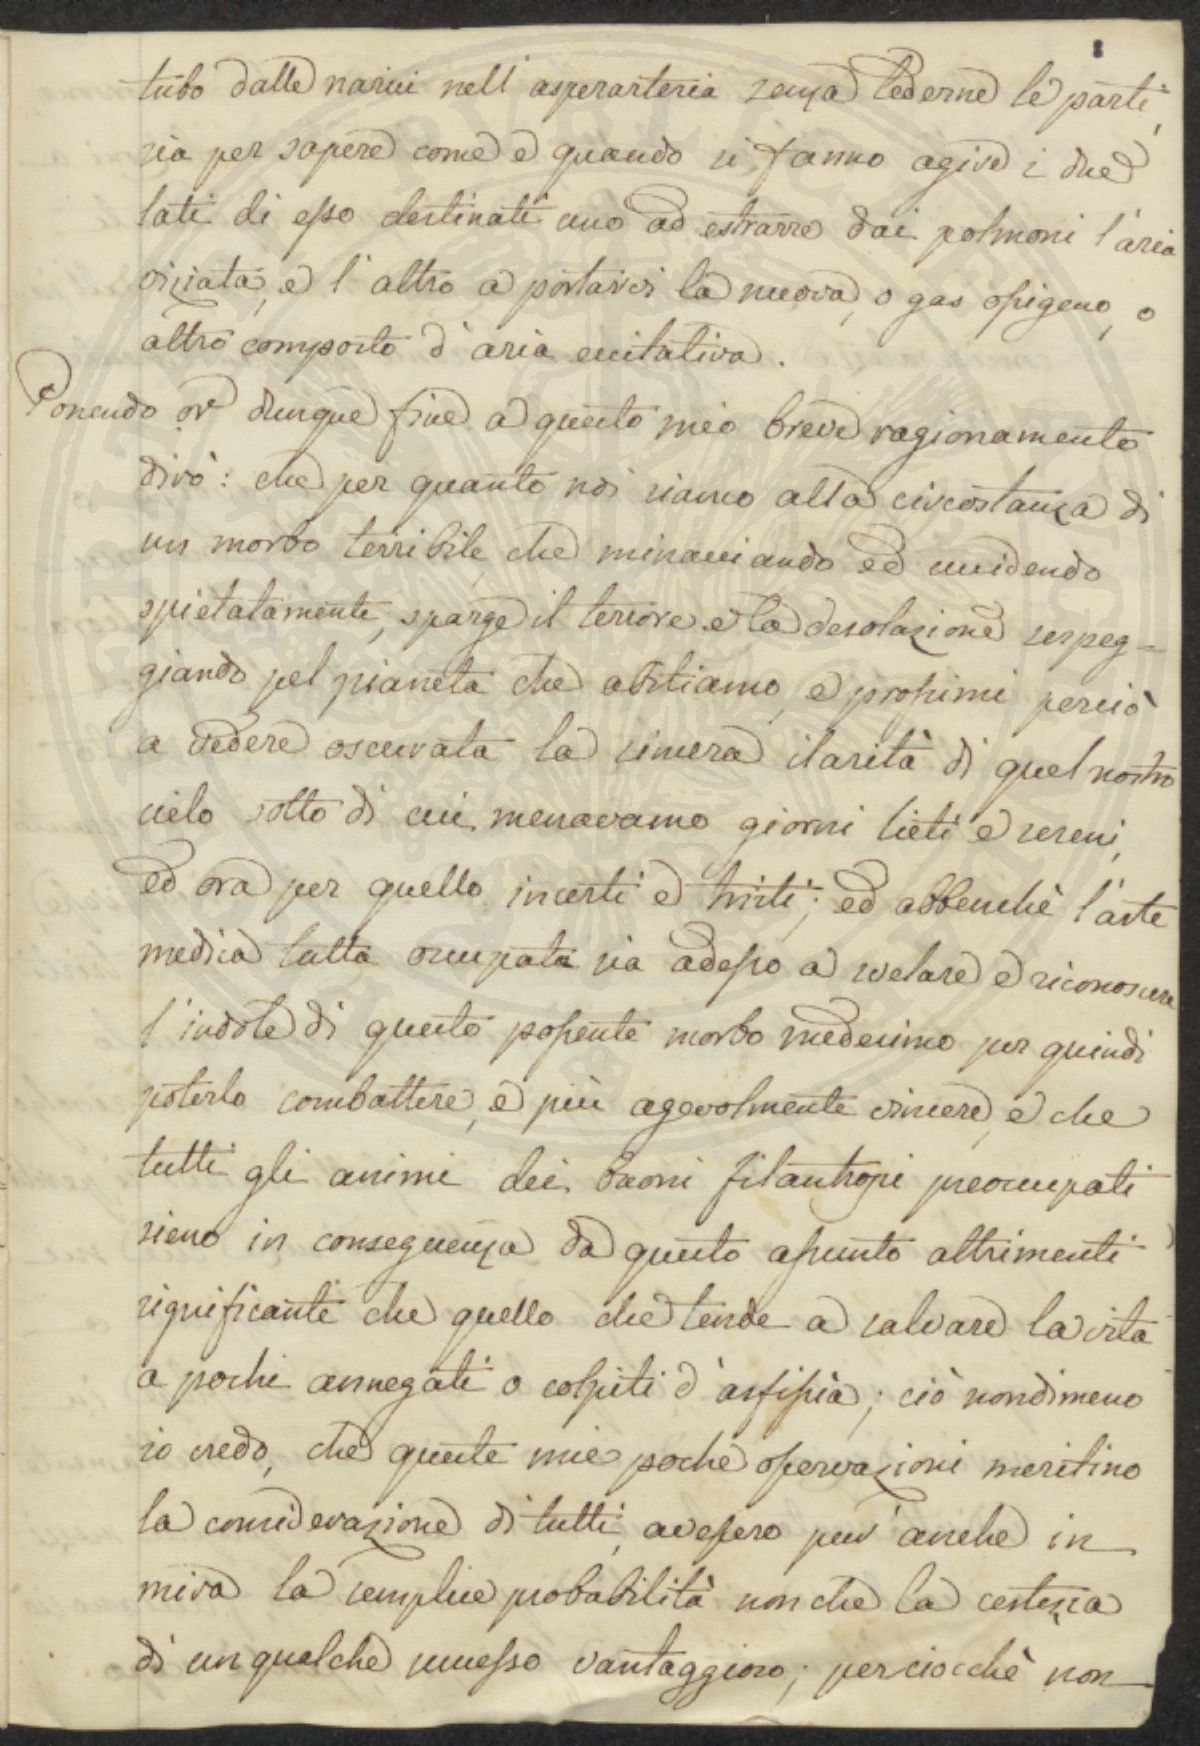 8
tubo dalle narici nell'asperarteria senza lederne le parti,
sia per sapere come e quando si fanno agire i due
lati di esso destinati uno ad estrarre dai polmoni l'aria
viziata, e l'altro a portarvi la nuova, o gas ossigeno, o
altro composto d'aria eccitativa.
Ponendo or dunque fine a questo mio breve ragionamento
dirò: che per quanto noi siamo alla circostanza di
un morbo terribile, che minacciando ed uccidendo
spietatamente, sparge il terrore e la desolazione serpeg-
giando pel pianeta che abitiamo, e prossimi perciò
a vedere oscurata la sincera ilarità di quel nostro
cielo sotto di cui menavamo giorni lieti e sereni,
ed ora per quello incerti e tristi; ed abbenchè l'arte
medica tutta occupata sia adesso a svelare e riconoscere
l'indole di questo possente morbo medesimo per quindi
poterlo combattere, e più agevolmente vincere, e che
tutti gli animi dei buoni filantropi preoccupati
sieno in conseguenza da questo assunto altrimenti
significante che quello che tende a salvare la vita
a pochi annegati o colpiti d'asfissia; ciò nondimeno
io credo, che queste mie poche osservazioni meritino
la considerazione di tutti, avessero pur anche in
mira la semplice probabilità non che la certezza
di un qualche successo vantaggioso; perciocchè non